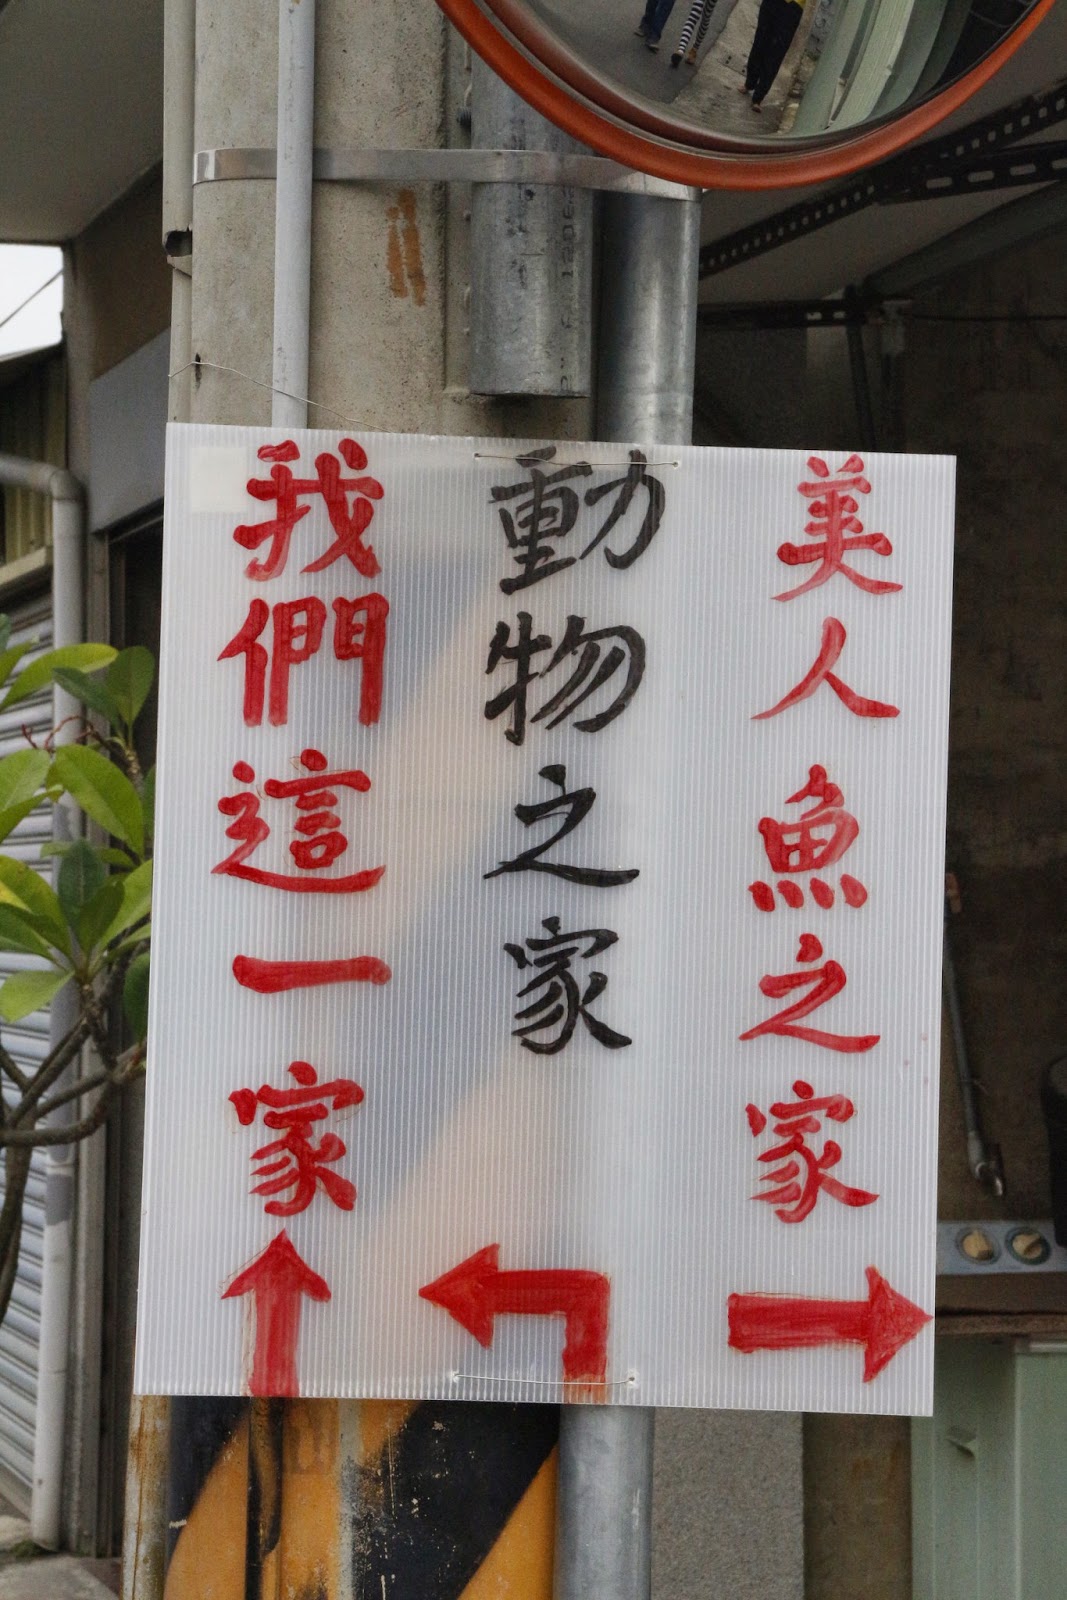 美人魚之家
動物之家
我們這一家